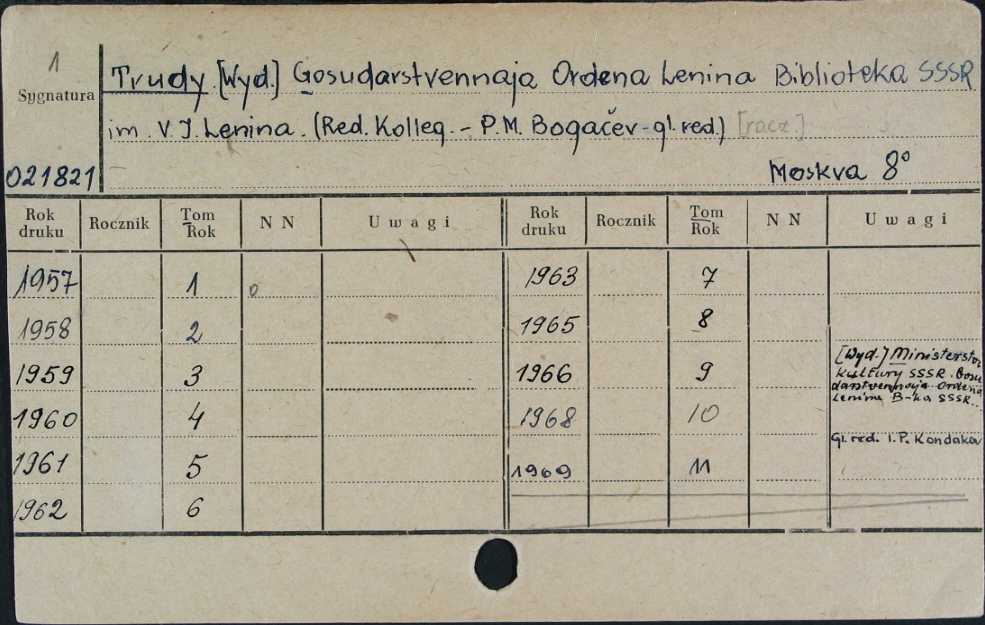 1
Sygnatura
021821
Trudy [Wyd.] Gosudarstvennaja Ordena Lenina Biblioteka SSSR
im. V. J. Lenina. (Red. Kolleg. - P.M. Bogačev - gl. red.) [rocz.]
Moskva 8°
Rok druku Rocznik Tom Rok N N Uwagi Rok druku Rocznik Tom Rok N N Uwagi
1957 1 0 1963 7
1958 2 1965 8
1959 3 1966 9
[Wyd.] Ministerstvo
Kultury SSSR. Gosu
darstvennaja Ordena
Lenina B-ka SSSR.
1960 4 1968 10
Gl. red. I. P. Kondakov
1961 5 1969 11
1962 6